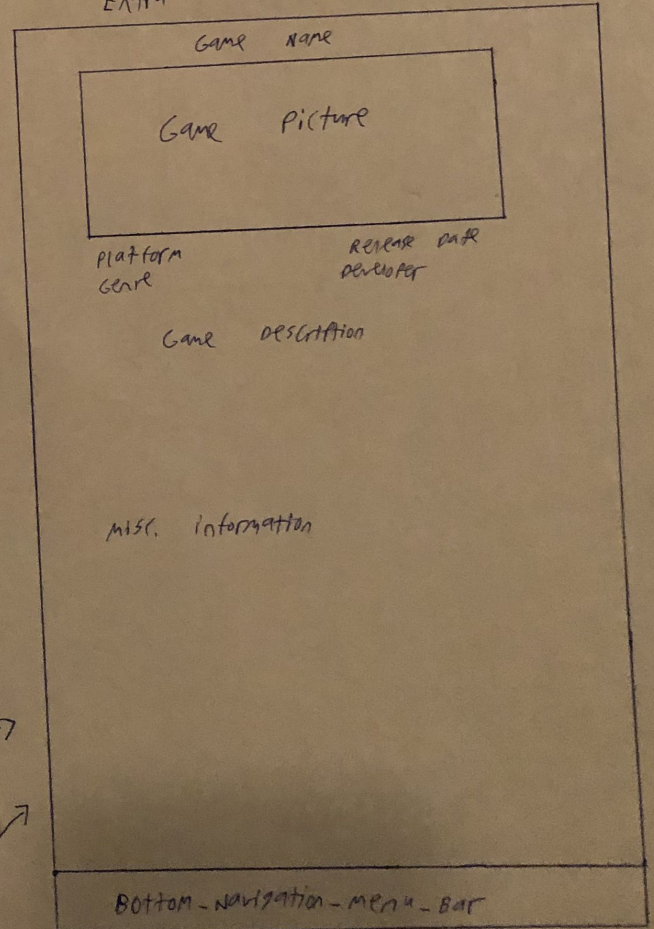 Game Name
Game Picture
Platform Release Date
Genre Developer
Game Description
Misc. information
Bottom_Navigation_Menu_Bar